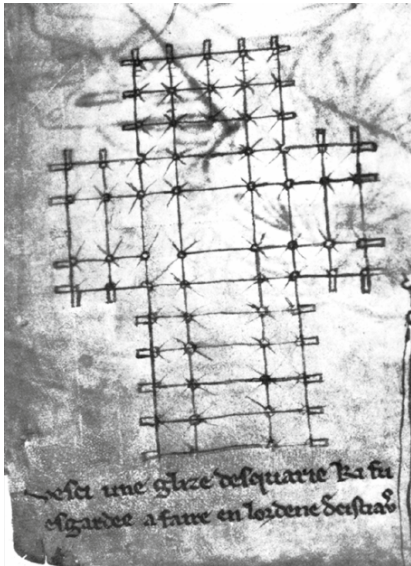 Vesci une glize desquarie ki fu
esgardee a faire en lordene